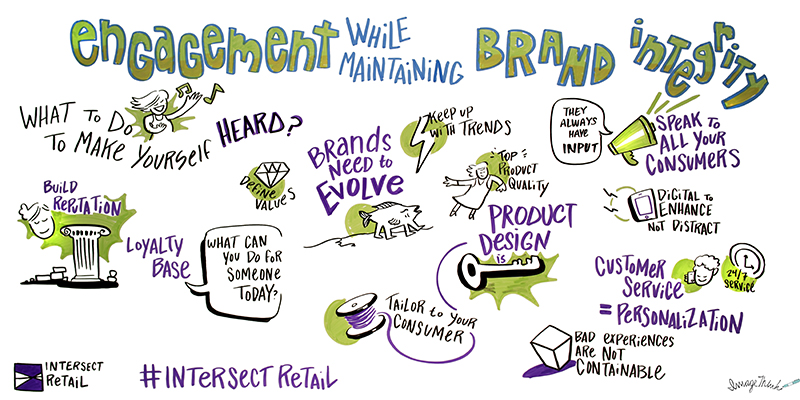 engagement WHILE MAINTAINING BRAND integrity
WHAT TO DO
TO MAKE YOURSELF HEARD?
DEFINE
VALUES
BUILD
REPUTATION
LOYALTY
BASE
WHAT CAN
YOU DO FOR
SOMEONE
TODAY?
BRANDS
NEED TO
EVOLVE
KEEP UP
WITH TRENDS
TOP
PRODUCT
QUALITY
PRODUCT
DESIGN
IS
TAILOR TO YOUR
CONSUMER
THEY
ALWAYS
HAVE
INPUT
SPEAK TO
ALL YOUR
CONSUMERS
DIGITAL TO
ENHANCE
NOT DISTRACT
CUSTOMER
SERVICE
= PERSONALIZATION
24/7
SERVICE
BAD EXPERIENCES
ARE NOT
CONTAINABLE
INTERSECT
RETAIL
#INTERSECT RETAIL
ImageThink